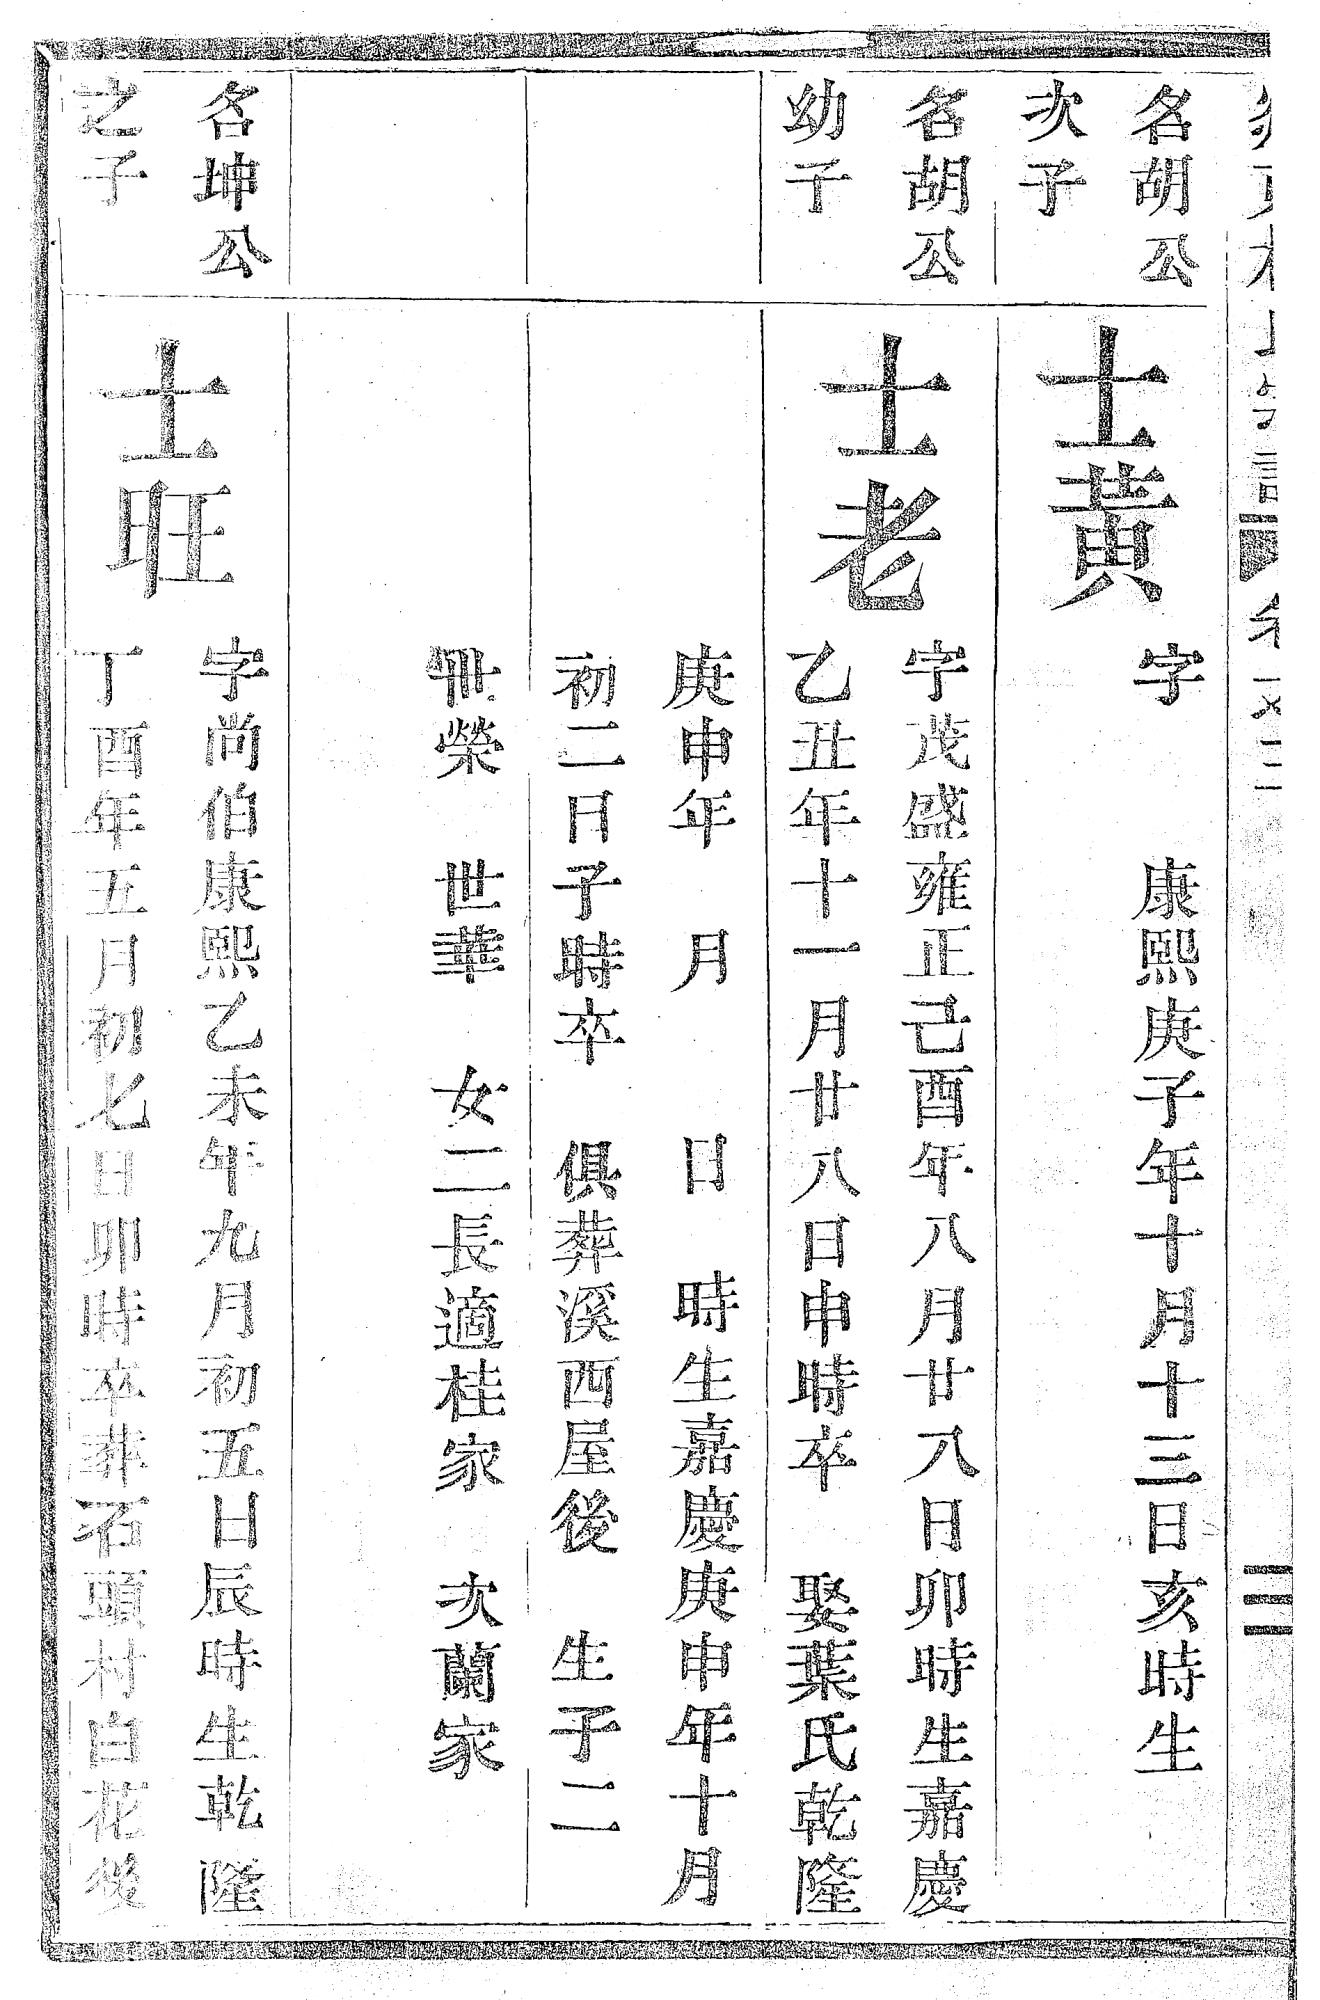 名胡公
次子
士黃
字　康熙庚子年十月十三日亥時生
名胡公
幼子
士老
字茂盛雍正己酉年八月廿八日卯時生嘉慶
乙丑年十一月廿八日申時卒　娶葉氏乾隆
庚申年　月　日　時生嘉慶庚申年十月
初二日子時卒　俱葬溪西屋後　生子二
世榮　世華　女二長適桂家　次蘭家
名坤公
之子
士旺
字尚伯康熙乙未年九月初五日辰時生乾隆
丁酉年五月初七日卯時卒葬石頭村白花後
三